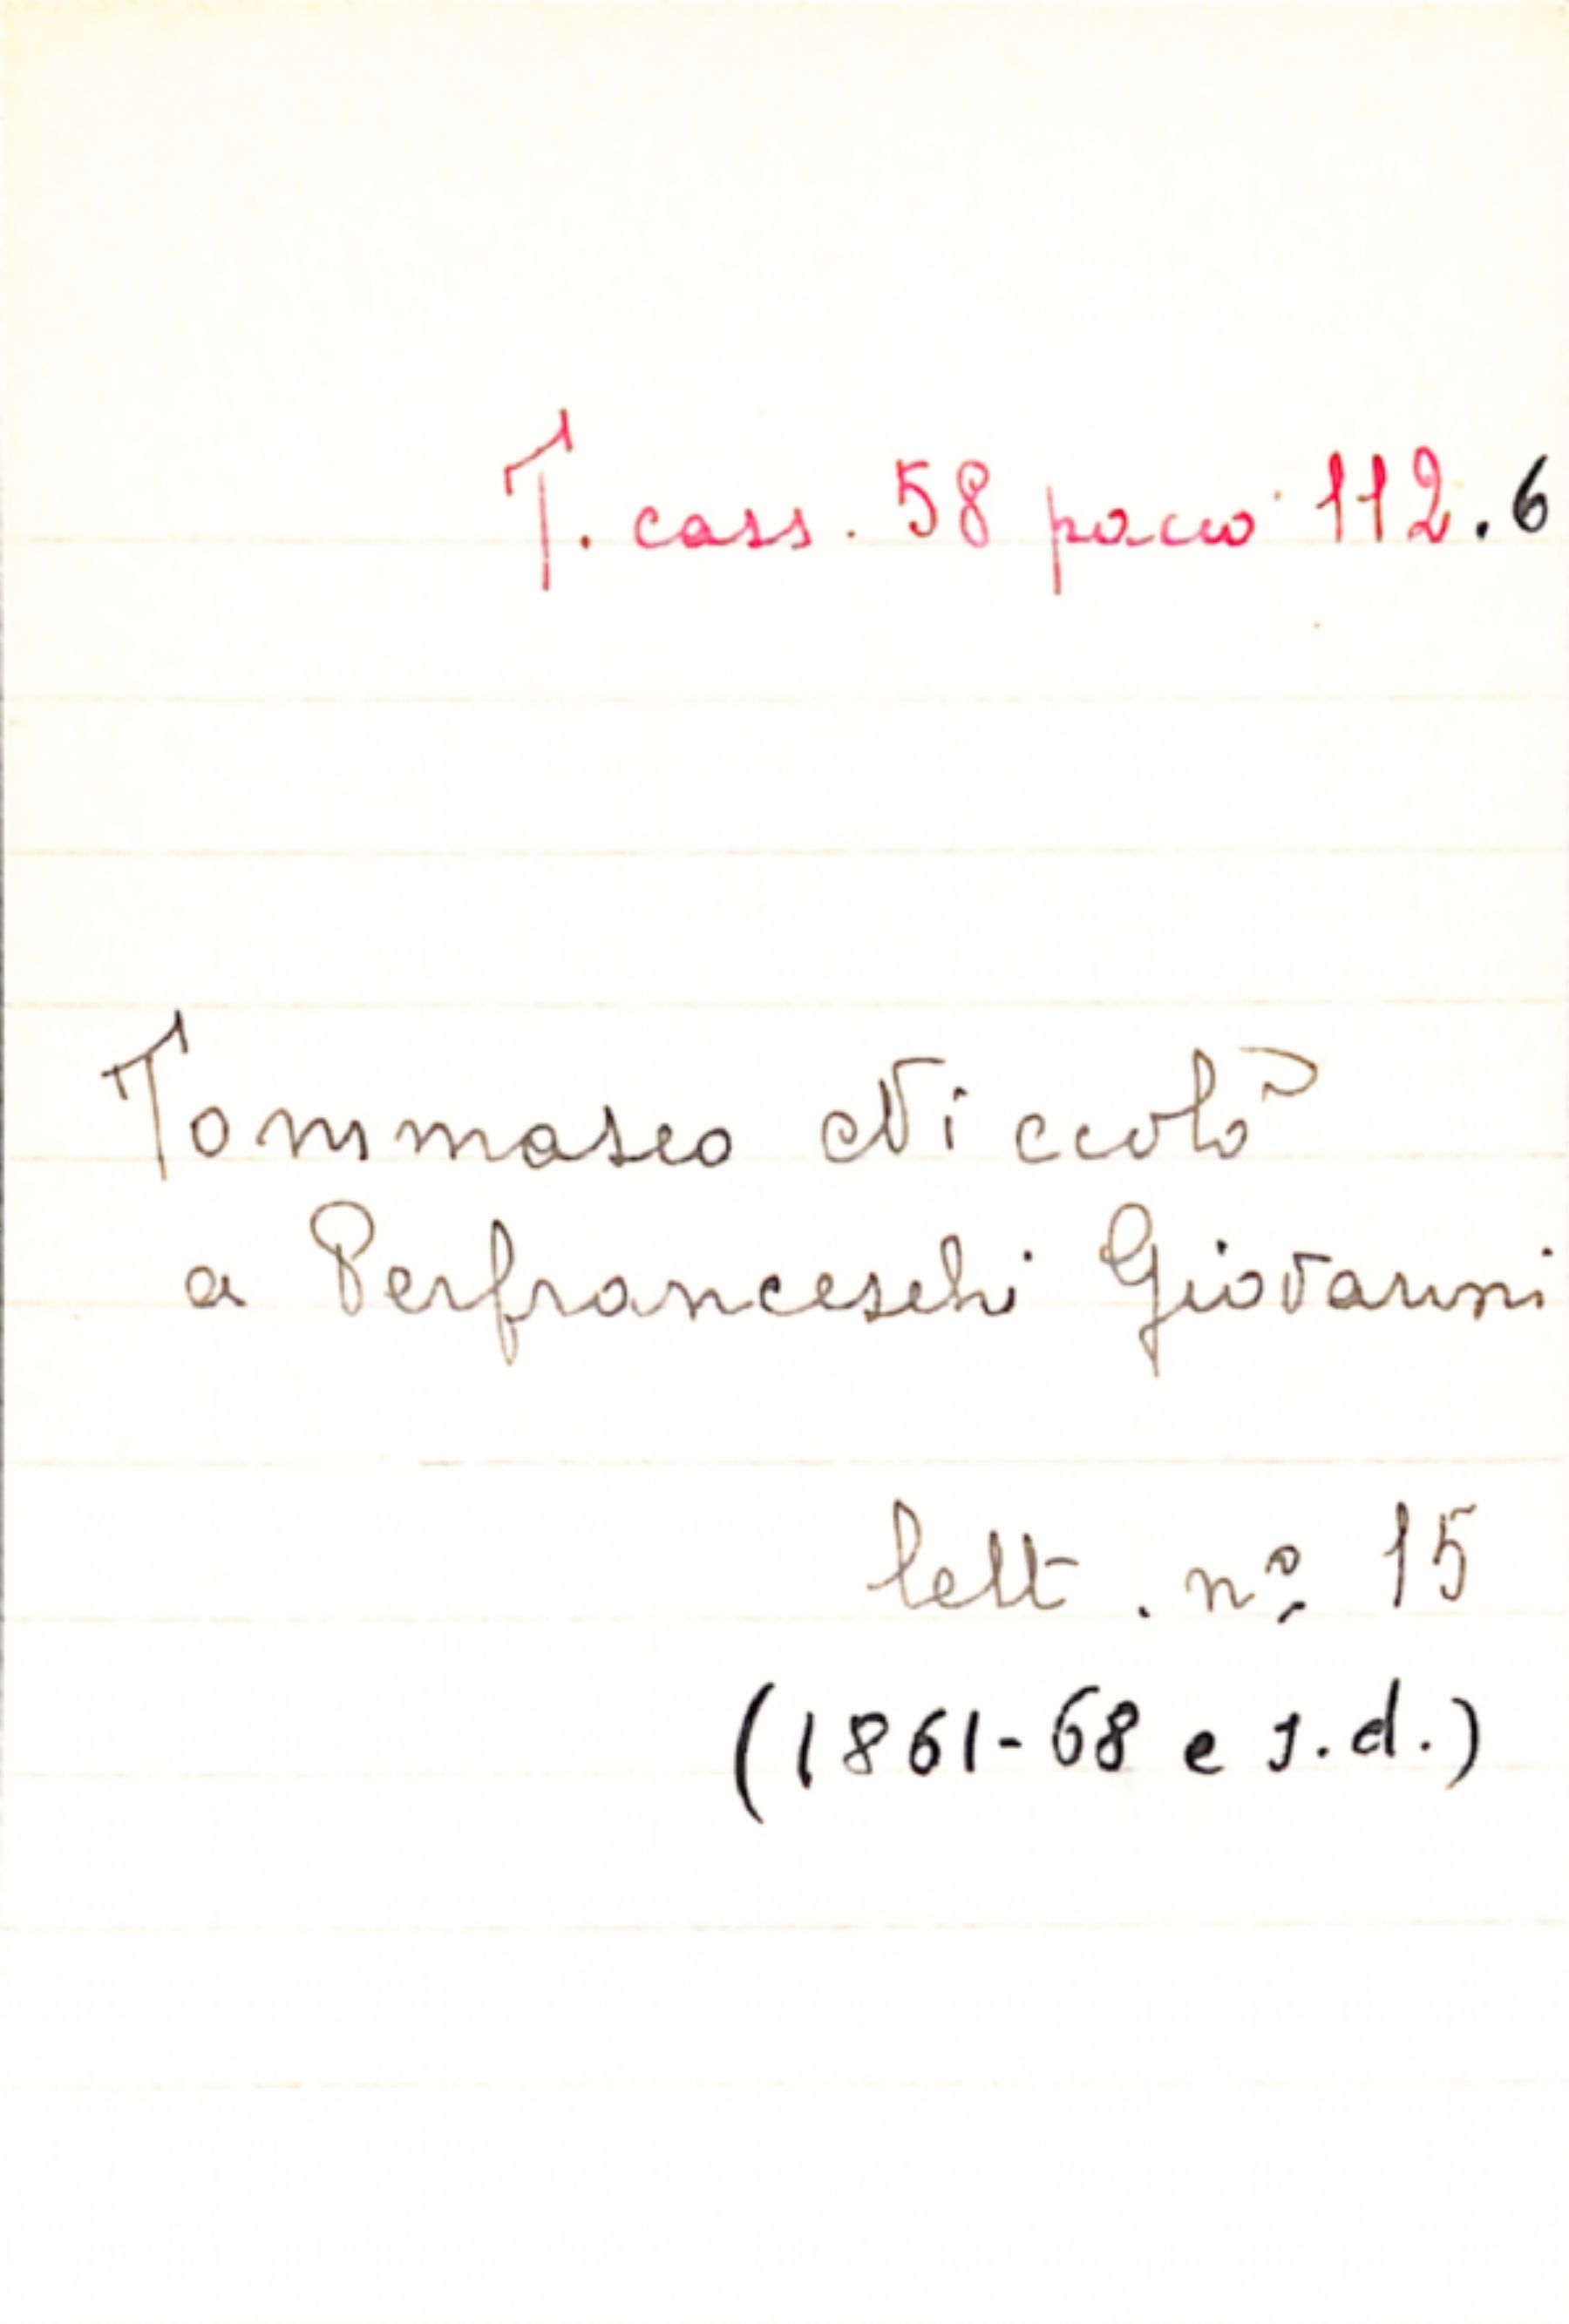 T. cass. 58 pacco 112.6
Tommaseo Niccolò
a Perfranceschi Giovanni
lett. nº 15
(1861-68 e s.d.)